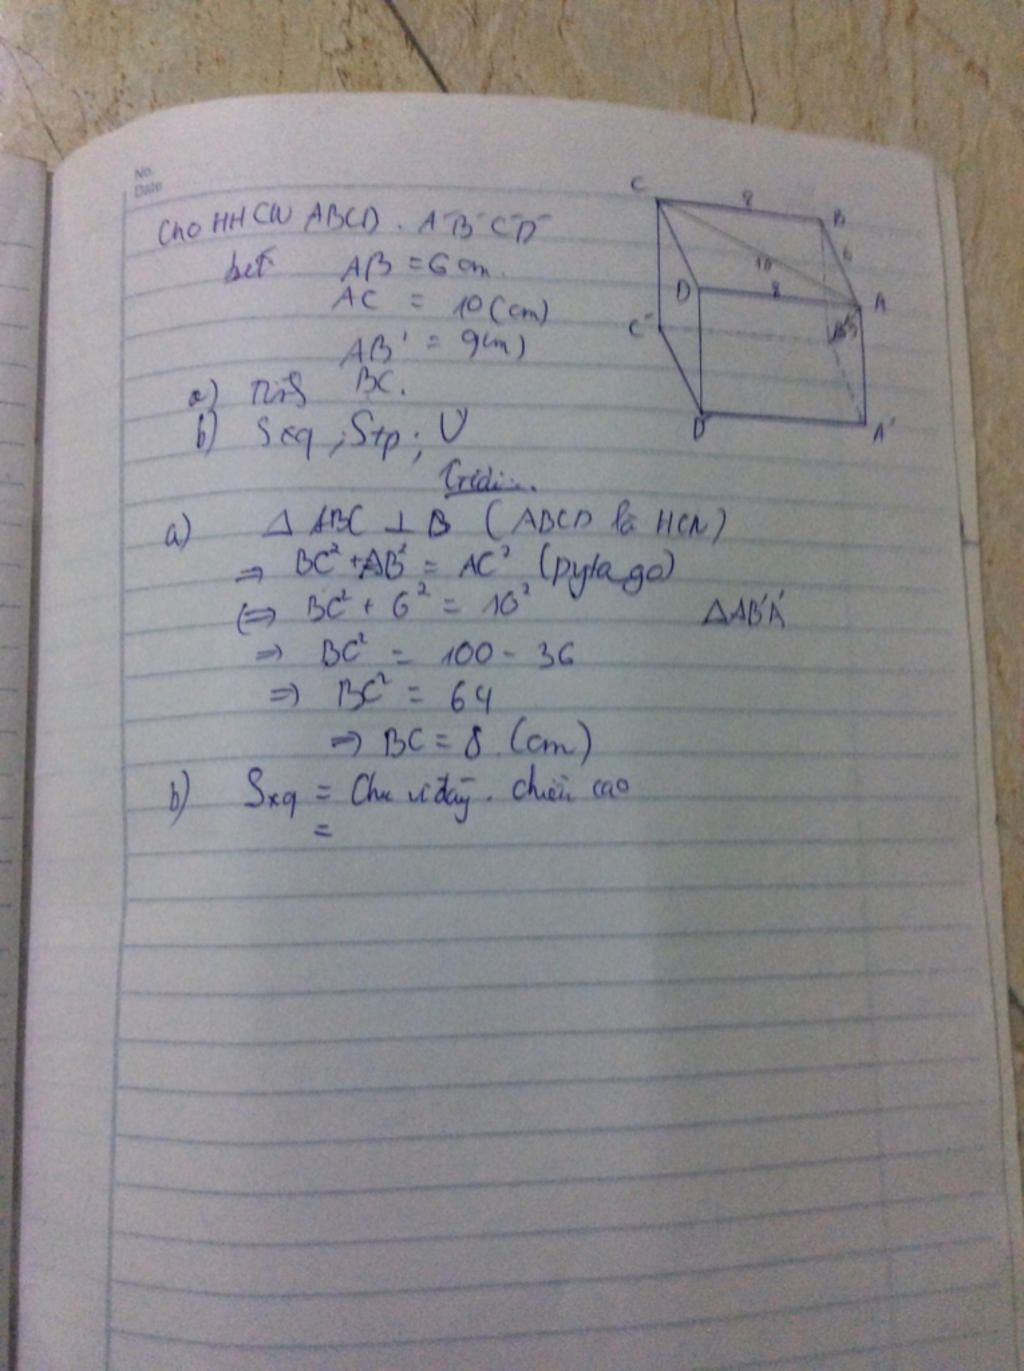 No.
Date
Cho HHCN ABCD . A'B'C'D'
biết AB = 6 cm.
AC = 10 (cm)
AB' = 9 cm)
a) Tính BC.
b) Sxq ; Stp ; V
C
8
B
6
10
D
8
A
C'
B'
D'
A'
a) Δ ABC ⊥ B (ABCD là HCN)
⇒ BC² + AB² = AC² (pytago)
(⇒ BC² + 6² = 10²
ΔAB'A'
⇒ BC² = 100 - 36
⇒ BC² = 64
⇒ BC = 8 (cm)
b) Sxq = Chu vi đáy . chiều cao
=